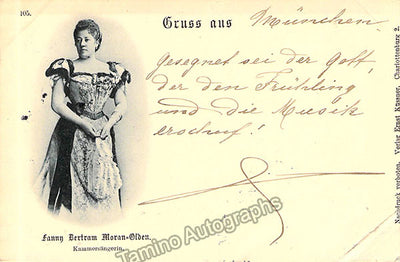 105.
Gruss aus München.
Gesegnet sei der Gott,
der den Frühling
und die Musik
erschuf!
Fanny Bertram Moran-Olden.
Kammersängerin.
Tamino Autographs
Nachdruck verboten. Verlag Ernst Küssner, Charlottenburg 2.